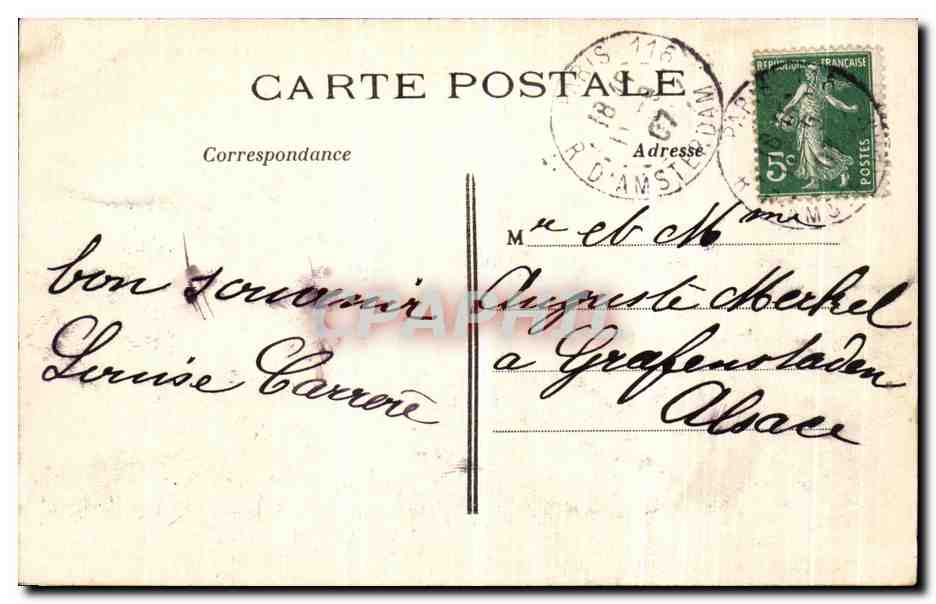 CARTE POSTALE
Correspondance
Adresse
PARIS 116
18
07
R. D'AMSTERDAM
REPUBLIQUE FRANÇAISE
5c
POSTES
bon souvenir
Louise Carrère
Mr et Mme
Auguste Merkel
a Grafenstaden
Alsace
CPAPHIL